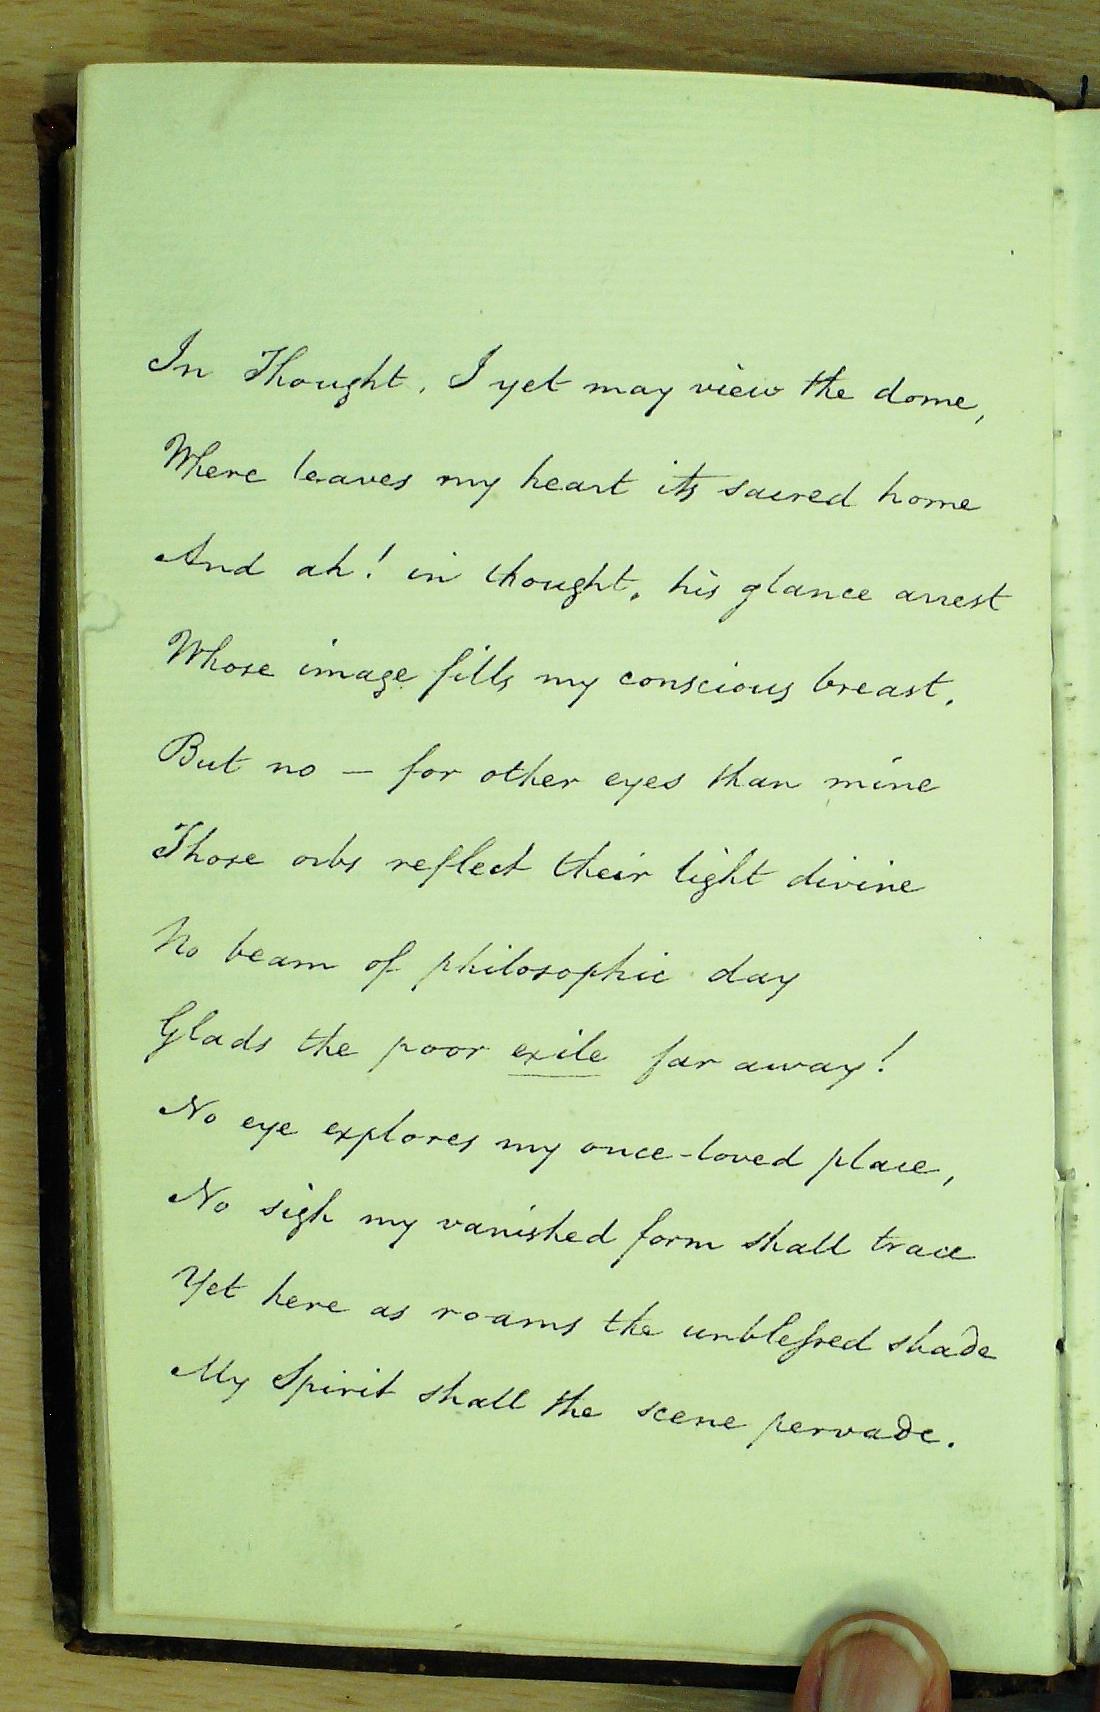 In Thought, I yet may view the dome,
Where leaves my heart its sacred home
And ah! in thought, his glance arrest
Whose image fills my conscious breast.
But no — for other eyes than mine
Those orbs reflect their light divine
No beam of philosophic day
Glads the poor exile far away!
No eye explores my once-loved place,
No sigh my vanished form shall trace
Yet here as roams the unblessed shade
My Spirit shall the scene pervade.